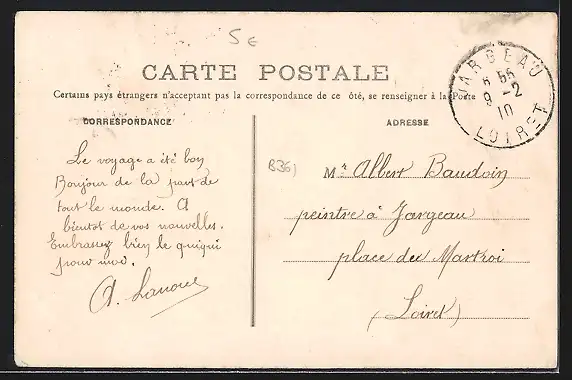 5 €
CARTE POSTALE
Certains pays étrangers n'acceptant pas la correspondance de ce côté, se renseigner à la Poste
JARGEAU
6 55
9 -2
10
LOIRET
CORRESPONDANCE
Le voyage a été bon
Bonjour de la part de
tout le monde. A
bientot de vos nouvelles.
Embrassez bien le quiqui
pour moi.
A. Lanoue
ADRESSE
B361
Mr Albert Baudoin
peintre à Jargeau
place du Martroi
(Loiret)